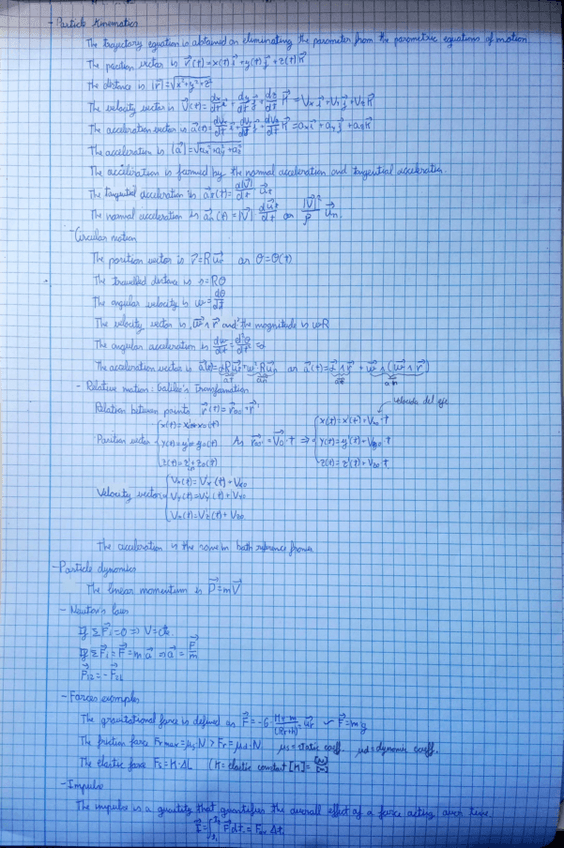 - Particle Kinematics
The trajectory equation is obtained on eliminating the parameter from the parametric equations of motion
The position vector is r⃗(t)=x(t)i⃗+y(t)j⃗+z(t)k⃗
The distance is |r⃗|=√(x²+y²+z²)
The velocity vector is V⃗(t)=dx/dt i⃗+dy/dt j⃗+dz/dt k⃗=Vx i⃗+Vy j⃗+Vz k⃗
The acceleration vector is a⃗(t)=dVx/dt i⃗+dVy/dt j⃗+dVz/dt k⃗=ax i⃗+ay j⃗+az k⃗
The acceleration is |a⃗|=√(ax²+ay²+az²)
The acceleration is formed by the normal acceleration and tangential acceleration.
The tangential acceleration is a⃗t(t)=d|V⃗|/dt u⃗t
The normal acceleration is a⃗n(t)=|V⃗| du⃗t/dt or |V⃗|²/ρ u⃗n.
- Circular motion
The position vector is r⃗=R u⃗r or θ=θ(t)
The travelled distance is s=Rθ
The angular velocity is ω=dθ/dt
The velocity vector is ω⃗∧r⃗ and the magnitude is ωR
The angular acceleration is dω/dt=d²θ/dt²=α
The acceleration vector is a⃗(t)=αR u⃗t+ω²R u⃗n or a⃗(t)=α⃗∧r⃗+ω⃗∧(ω⃗∧r⃗)
at an at an
- Relative motion: Galileo's transformation
velocidad del eje
Relation between points r⃗(t)=r⃗oo'+r⃗'
Position vector {x(t)=x'+xo(t) As r⃗oo'=V⃗o·t ⇒ {x(t)=x'(t)+Vxo·t
y(t)=y'+yo(t) y(t)=y'(t)+Vyo·t
z(t)=z'+zo(t) z(t)=z'(t)+Vzo·t
Velocity vector {Vx(t)=Vx'(t)+Vxo
Vy(t)=Vy'(t)+Vyo
Vz(t)=Vz'(t)+Vzo
The acceleration is the same in both reference frames
- Particle dynamics
The linear momentum is P⃗=mV⃗
- Newton's laws
If ΣF⃗i=0 ⇒ V=cte
If ΣF⃗i=F⃗=m a⃗ ⇒ a⃗=F⃗/m
F⃗12=-F⃗21
- Forces examples
The gravitational force is defined as F⃗=-G M·m/(RT+h)² u⃗r F⃗=mg
The friction force Fr max=μs·N > Fr=μd·N μs=static coeff. μd=dynamic coeff.
The elastic force Fe=K·ΔL (K=elastic constant [K]=[N]/[m]
- Impulse
The impulse is a quantity that quantifies the overall effect of a force acting over time.
I⃗=∫F⃗dt=Fav Δt